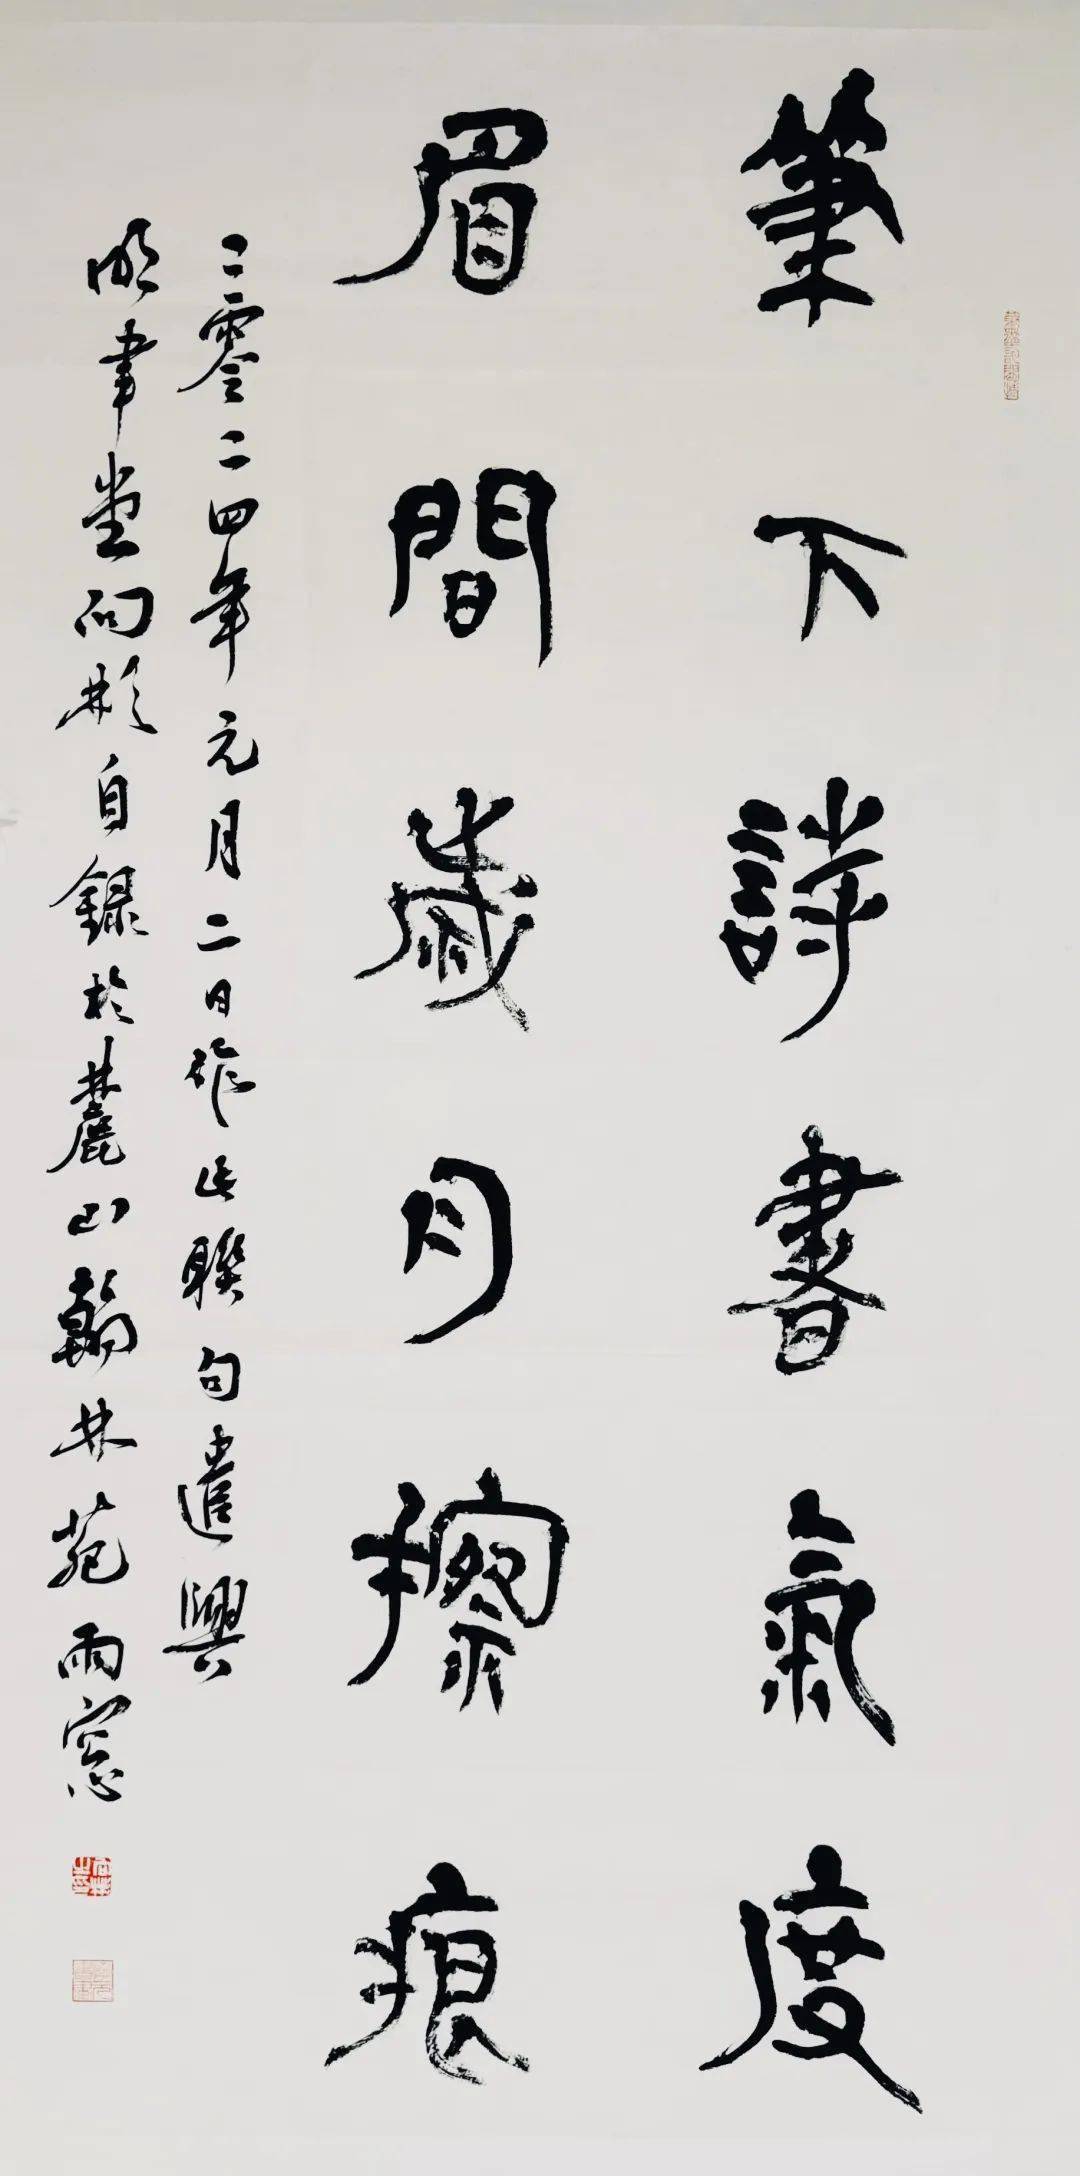 筆下詩書氣度
眉間歲月擦痕
二零二四年元月二日作此聯句遣興
聿堂向彬自錄於麓山翰林苑雨窓